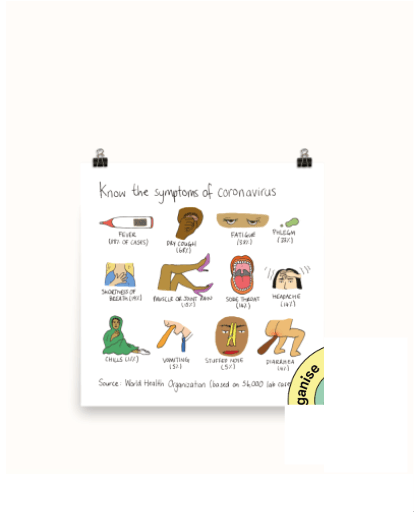 Know the symptoms of coronavirus
FEVER
(88% OF CASES)
DRY COUGH
(68%)
FATIGUE
(38%)
PHLEGM
(33%)
SHORTNESS OF
BREATH (19%)
MUSCLE OR JOINT PAIN
(15%)
SORE THROAT
(14%)
HEADACHE
(14%)
CHILLS (11%)
VOMITING
(5%)
STUFFED NOSE
(5%)
DIARRHEA
(4%)
Source: World Health Organization (based on 56,000 lab
ganise